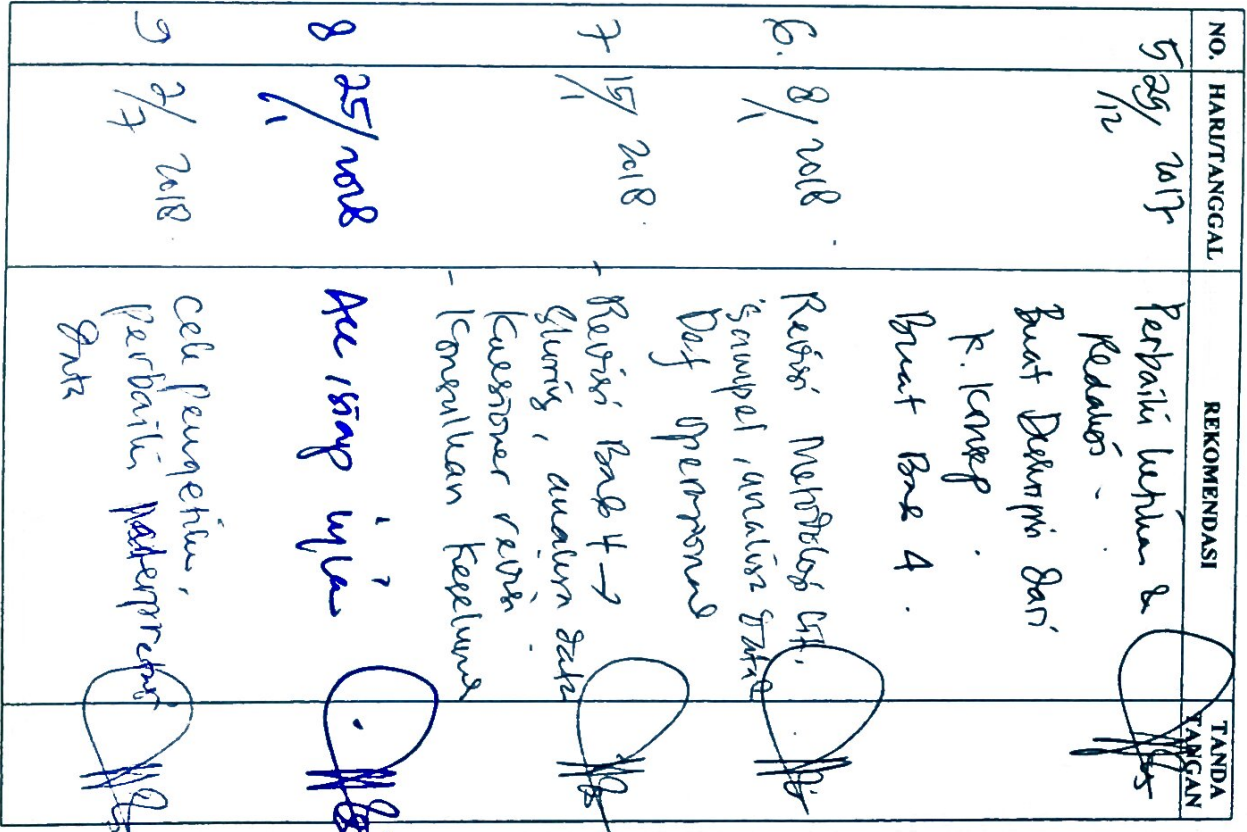 NO. HARI/TANGGAL REKOMENDASI TANDA TANGAN
5 29/12 2017 Perbaiki &
Redaksi.
Buat Deskripsi dari
K. Konsep.
Buat Bab 4.
6. 8/1 2018 Revisi Metodologi
Sampel, analisa data
Def operasional
7 15/1 2018 - Revisi Bab 4 →
analisa data
Kuesioner revisi
- Konsulkan
8 25/1 2018 Acc siap
9 2/7 2018 Cek pengetikan,
perbaiki
data